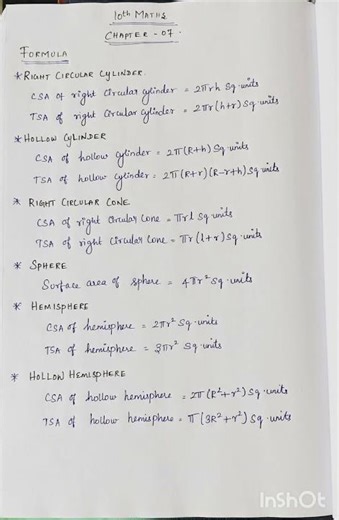 10th MATHS
CHAPTER - 07.
FORMULA
* RIGHT CIRCULAR CYLINDER.
CSA of right circular cylinder = 2πrh Sq.units
TSA of right circular cylinder = 2πr(h+r) Sq.units
* HOLLOW CYLINDER
CSA of hollow cylinder = 2π(R+h) Sq.units
TSA of hollow cylinder = 2π(R+r)(R-r+h) Sq.units
* RIGHT CIRCULAR CONE
CSA of right circular cone = πrl Sq.units
TSA of right circular cone = πr(l+r) Sq.units
* SPHERE
Surface area of sphere = 4πr² Sq.units
* HEMISPHERE
CSA of hemisphere = 2πr² Sq.units
TSA of hemisphere = 3πr² Sq.units
* HOLLOW HEMISPHERE
CSA of hollow hemisphere = 2π(R²+r²) Sq.units
TSA of hollow hemisphere = π(3R²+r²) Sq.units
InShOt